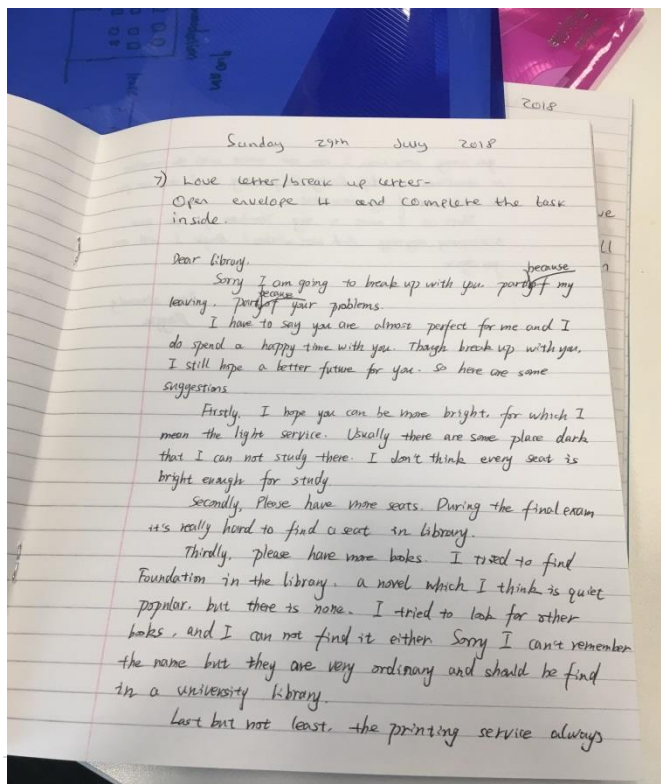 2018
Sunday 29th July 2018
7) Love letter/break up letter-
Open envelope 4 and complete the task
inside.
Dear library,
Sorry I am going to break up with you, partly because of my
leaving, partly because of your problems.
I have to say you are almost perfect for me and I
do spend a happy time with you. Though break up with you,
I still hope a better future for you. so here are some
suggestions
Firstly, I hope you can be more bright, for which I
mean the light service. Usually there are some place dark
that I can not study there. I don't think every seat is
bright enough for study
Secondly, Please have more seats. During the final exam
it's really hard to find a seat in library.
Thirdly, please have more books. I tried to find
Foundation in the library, a novel which I think is quiet
popular, but there is none. I tried to look for other
books, and I can not find it either Sorry I can't remember
the name but they are very ordinary and should be find
in a university library.
Last but not least, the printing service always